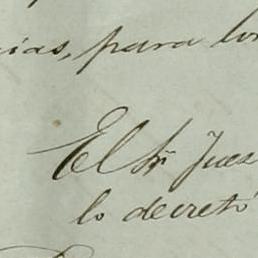 cias, para los
El Sr Juez
lo decretó